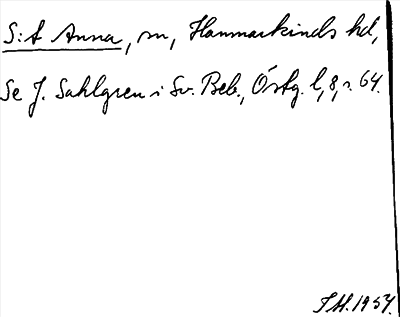 S:t Anna, sn, Hammarkinds hd,
Se J. Sahlgren i Sv. Beb., Östg. l, 8, s. 64.
1954.